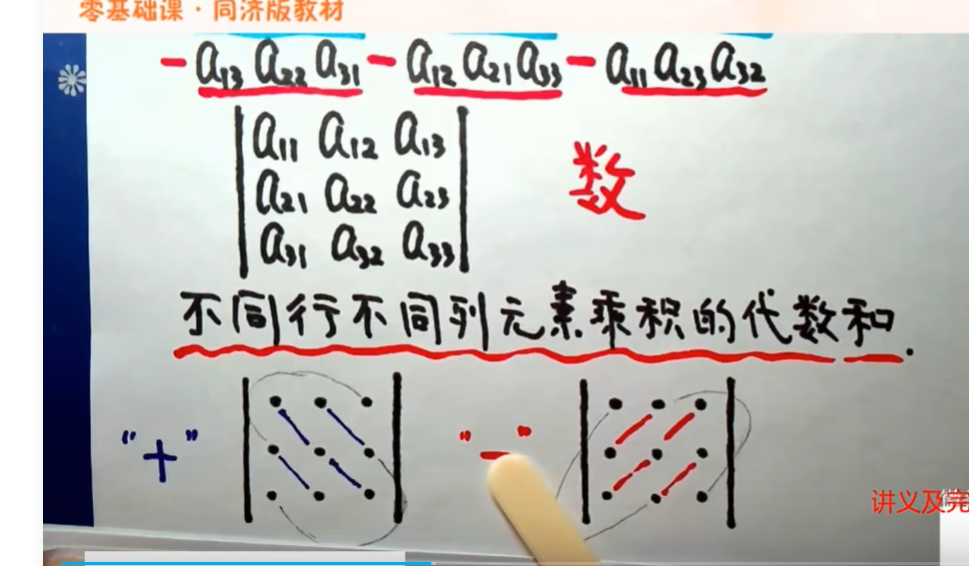 零基础课·同济版教材
-a13 a22 a31 - a12 a21 a33 - a11 a23 a32
a11 a12 a13
a21 a22 a23
a31 a32 a33
数
不同行不同列元素乘积的代数和.
"+"
"-"
讲义及完